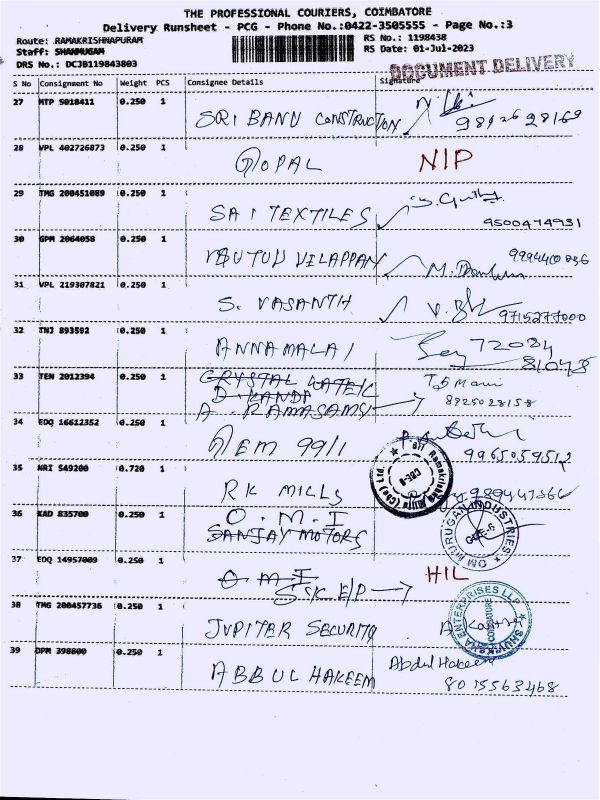 THE PROFESSIONAL COURIERS, COIMBATORE
Delivery Runsheet - PCG - Phone No.:0422-3505555 - Page No.:3
Route: RAMAKRISHNAPURAM
RS No.: 1198438
Staff: SHANMUGAM
RS Date: 01-Jul-2023
DRS No.: DCJB119843803
DOCUMENT DELIVERY
S No Consignment No Weight PCS Consignee Details Signature
27 MTP 5018411 0.250 1
SRI BANU CONSTRUCTION
28 VPL 402726873 0.250 1
GOPAL NIP
29 TMG 200451089 0.250 1
SAI TEXTILES 9500474931
30 GPM 2064058 0.250 1
VILAPPAN
31 VPL 219307821 0.250 1
S. VASANTH 9715277000
32 TNJ 893592 0.250 1
ANNAMALAI 72084
81048
33 TEN 2012394 0.250 1
CRYSTAL
D. KANDA
A. RAMASAMY 8925028158
34 EDQ 16612352 0.250 1
GEM 99/1 9965059512
Sri Ramakrishna Mills (Cbe) Ltd. CBE-6
35 NRI 549200 0.720 1
RK MILLS
36 KAD 835700 0.250 1
O.M.I
SANJAY MOTORS
OM MURUGAN INDUSTRIES CBE-6
37 EDQ 14957089 0.250 1
O M I HIL
SSK E/P
38 TMG 200457736 0.250 1
JUPITER SECURITY
ENTERPRISES LLP COIMBATORE
39 DPM 398800 0.250 1
ABBUL HAKEEM Abdul Hakeem
8015563468